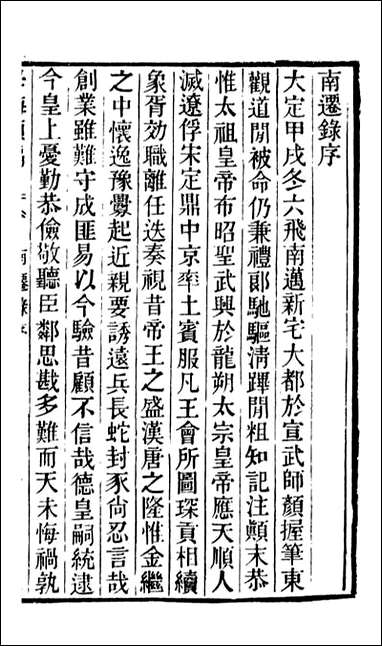 南遷錄序
大定甲戌冬六飛南邁新宅大都於宣武師顏握筆東
觀道閒被命仍兼禮郎馳驅淸蹕閒粗知記注顚末恭
惟太祖皇帝布昭聖武興於龍朔太宗皇帝應天順人
滅遼俘宋定鼎中京率土賓服凡王會所圖琛貢相續
象胥効職離任迭奏視昔帝王之盛漢唐之隆惟金繼
之中懷逸豫釁起近親要誘遠兵長蛇封豕尙忍言哉
創業雖難守成匪易以今驗昔顧不信哉德皇嗣統逮
今皇上憂勤恭儉敬聽臣鄰思戡多難而天未悔禍孰
南遷錄序